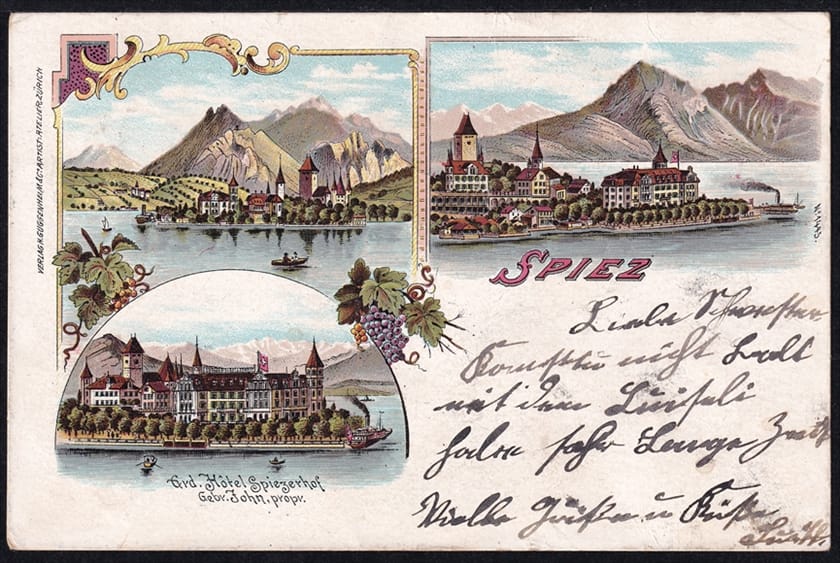 VERLAG H. GUGGENHEIM & Cº ARTIST: ATELIER, ZÜRICH.
SPIEZ
Grd. Hôtel Spiezerhof
Gebr. John, propr.
Liebe Schwester
Komstu nicht bald
mit dem Luiseli
habe sehr Lange Zeit
Vielle Grüsse u Küsse